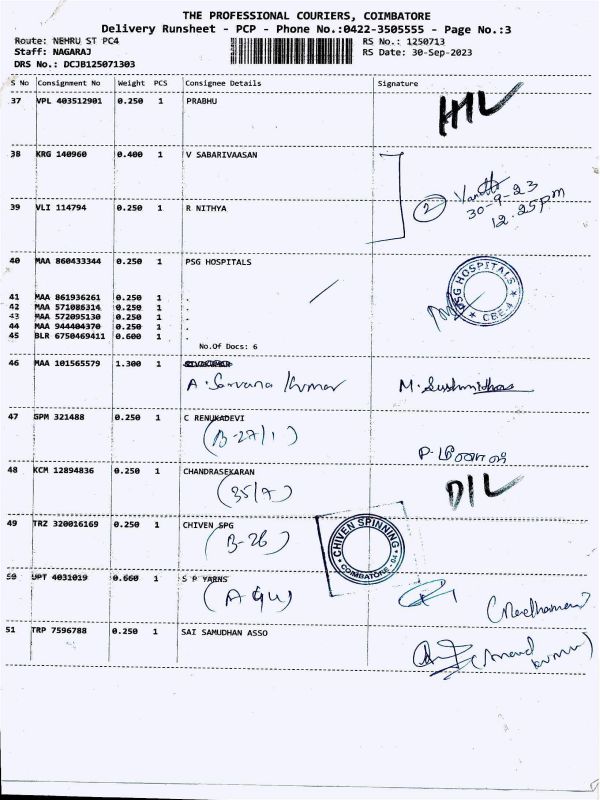 THE PROFESSIONAL COURIERS, COIMBATORE
Delivery Runsheet - PCP - Phone No.:0422-3505555 - Page No.:3
Route: NEHRU ST PC4 RS No.: 1250713
Staff: NAGARAJ RS Date: 30-Sep-2023
DRS No.: DCJB125071303
S No Consignment No Weight PCS Consignee Details Signature
37 VPL 403512901 0.250 1 PRABHU
38 KRG 140960 0.400 1 V SABARIVAASAN
2
30-9-23
12.25pm
39 VLI 114794 0.250 1 R NITHYA
40 MAA 860433344 0.250 1 PSG HOSPITALS
PSG HOSPITALS
CBE-4
41 MAA 861936261 0.250 1 .
42 MAA 571086314 0.250 1 .
43 MAA 572095130 0.250 1 .
44 MAA 944404370 0.250 1 .
45 BLR 6750469411 0.600 1 .
No.Of Docs: 6
46 MAA 101565579 1.300 1
A. Sarvana Kumar
47 GPM 321488 0.250 1 C RENUKADEVI
(B-27/1)
48 KCM 12894836 0.250 1 CHANDRASEKARAN
(35/7) D/L
49 TRZ 320016169 0.250 1 CHIVEN SPG
(B-26)
CHIVEN SPINNING
COIMBATORE
50 UPT 4031019 0.660 1 S P YARNS
51 TRP 7596788 0.250 1 SAI SAMUDHAN ASSO
(Anand
kumar)